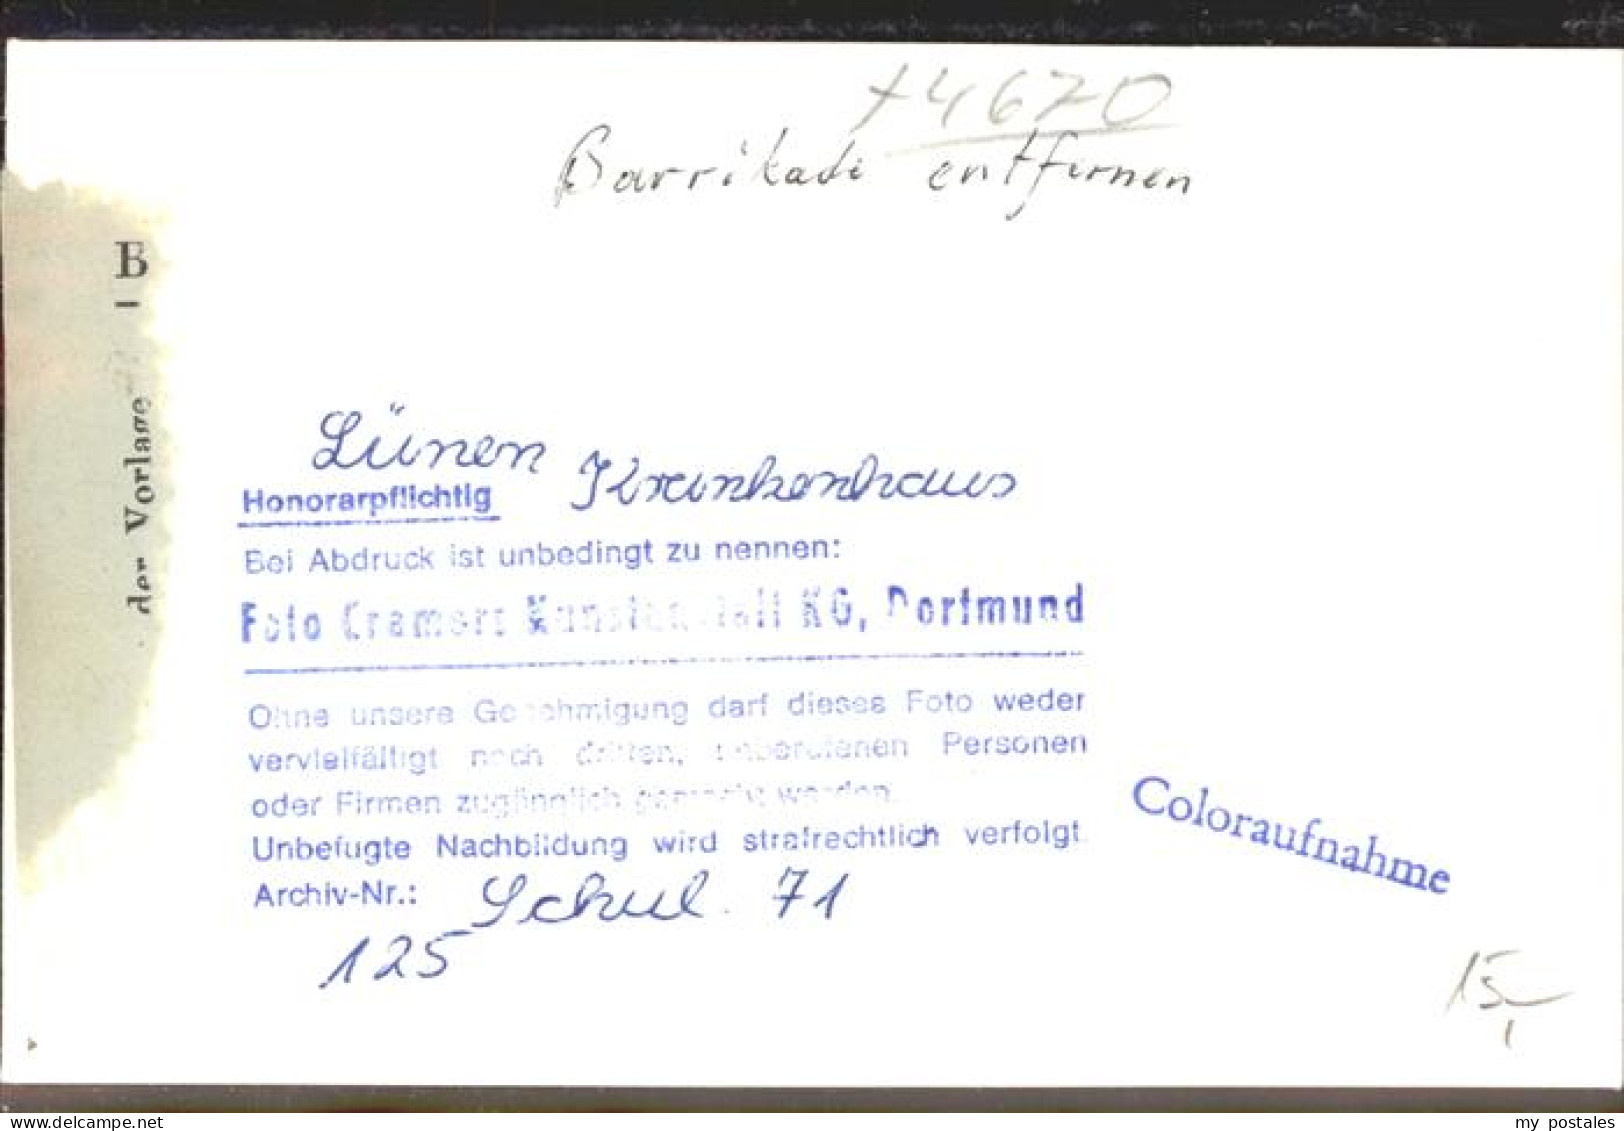 +4670
Barrikade entfernen
B
der Vorlage
Lünen Krankenhaus
Honorarpflichtig
Bei Abdruck ist unbedingt zu nennen:
Foto Cramers Kunstanstalt KG, Dortmund
Ohne unsere Genehmigung darf dieses Foto weder
vervielfältigt noch dritten, unberufenen Personen
oder Firmen zugänglich gemacht werden.
Unbefugte Nachbildung wird strafrechtlich verfolgt.
Archiv-Nr.: Schul. 71
125
Coloraufnahme
15,-
my postales